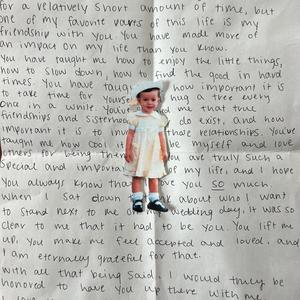 for a relatively short amount of time, but
one of my favorite parts of this life is my
friendship with you. You have made more of
an impact on my life than you know.
You have taught me how to enjoy the little things,
how to slow down, how find the good in hard
times. You have taught how important it is
to take time for yourse hug a tree every
once in a while. You've me that true
friendships and Sisterhood do exist, and how
important it is to inv those relationships. You've
taught me how cool it be myself and love
others for being them you are truly such a
special and importa of my life, and I hope
You always know tha ve you SO much.
When I sat down k about who I want
to stand next to me o edding day, it was so
clear to me that it had to be you. You lift me
up, you make me feel accepted and loved, and
I am eternally grateful for that.
With all that being said, I would truly be
honored to have you up there with me